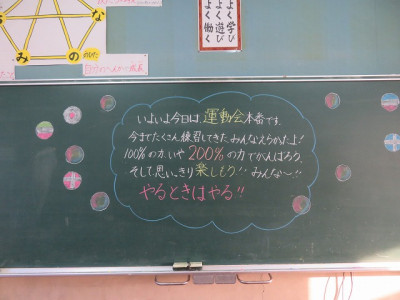 よく学び
よく遊び
よく働く
な
の
み
いよいよ今日は、運動会本番です。
今までたくさん練習してきた。みんなえらかったよ！
100%の力、いや200%の力でがんばろう。
そして思いっきり楽しもう！！みんな〜！！
やるときはやる！！